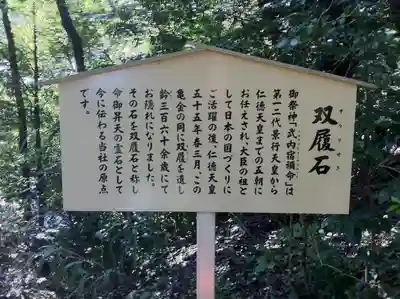 双履石
そうりせき
御祭神「武内宿禰命」は
第十二代景行天皇から
仁徳天皇までの五朝に
お仕えされ、大臣の祖と
して日本の国づくりに
ご活躍の後、仁徳天皇
五十五年春三月、この
亀金の岡に双履を遺し
齢三百六十余歳にて
お隠れになりました。
その石を双履石と称し
命御昇天の霊石として
今に伝わる当社の原点
です。